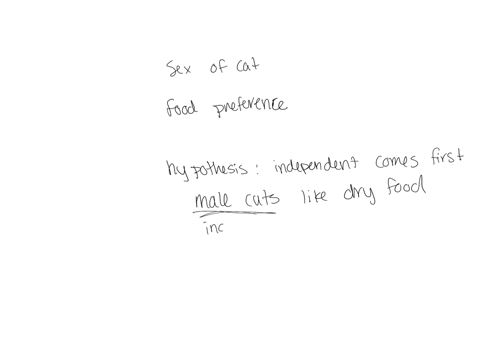 sex of cat
food preference
hypothesis: independent comes first
male cats like dry food
inc